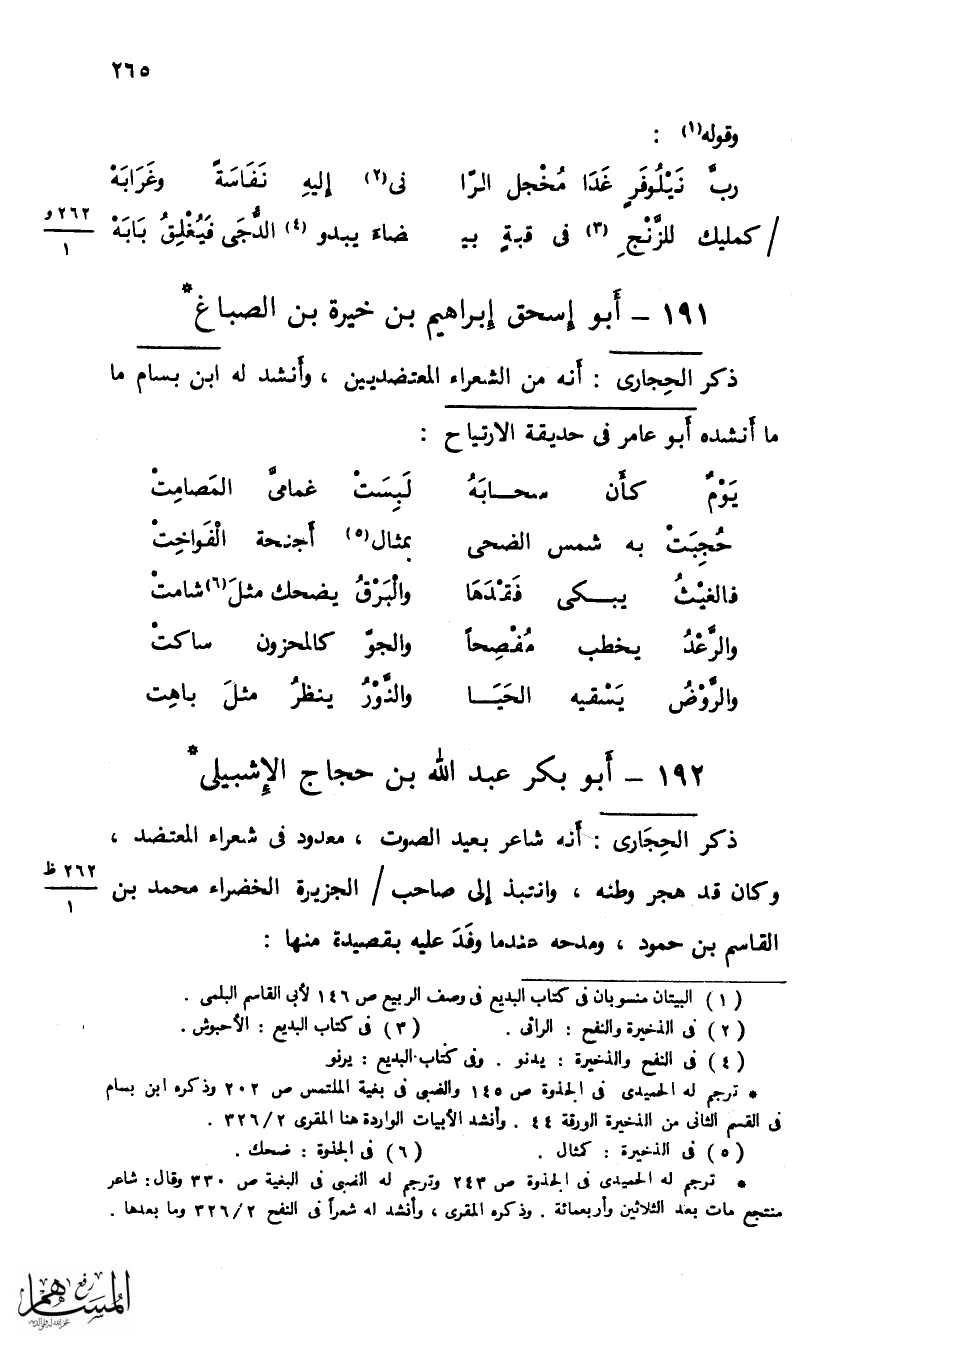 ٢٦٥
وقوله(١) :
ربَّ نَيْلُوفَرٍ غَدَا مُخْجل الرّا     نى(٢) إليهِ نَفَاسَةً وغَرَابَهْ
/ كمليك للزَّنْجِ (٣) فى قبةٍ بيـ     ضاءَ يبدو (٤) الدُّجَى فَيُغْلِقُ بَابَهْ
٢٦٢ و
١
١٩١ – أبو إسحق إبراهيم بن خيرة بن الصباغ*
ذكر الحِجارى : أنه من الشعراء المعتضديين ، وأنشد له ابن بسام ما
ما أنشده أبو عامر فى حديقة الارتياح :
يَوْمٌ كأَن سحــابَهُ     لَبِسَتْ غمامىَّ المَصامِتْ
حُجِبَتْ به شمس الضحى     بمثال(٥) أجنحة الْفَواخِتْ
فالغيْثُ يبــكى فَقْدَهَا     والْبَرْقُ يضحك مثلَ(٦) شامتْ
والرَّعْدُ يخطب مُفْصِحاً     والجوّ كالمحزون ساكتْ
والرَّوْضُ يَسْقيه الحَيَــا     والنَّوْرُ ينظرُ مثلَ باهِت
١٩٢ – أبو بكر عبد الله بن حجاج الإشبيلى*
ذكر الحِجَارى : أنه شاعر بعيد الصوت ، معدود فى شعراء المعتضد ،
وكان قد هجر وطنه ، وانتبذ إلى صاحب / الجزيرة الخضراء محمد بن
٢٦٢ ظ
١
القاسم بن حمود ، ومدحه عندما وفَدَ عليه بقصيدة منها :
(١) البيتان منسوبان فى كتاب البديع فى وصف الربيع ص ١٤٦ لأبى القاسم البلمى .
(٢) فى الذخيرة والنفح : الرائى .     (٣) فى كتاب البديع : الأحبوش .
(٤) فى النفح والذخيرة : يدنو . وفى كتاب البديع : يرنو
* ترجم له الحميدى فى الجذوة ص ١٤٥ والضبى فى بغية الملتمس ص ٢٠٢ وذكره ابن بسام
فى القسم الثانى من الذخيرة الورقة ٤٤ . وأنشد الأبيات الواردة هنا المقرى ٣٢٦/٢ .
(٥) فى الذخيرة : كثال .     (٦) فى الجذوة : ضحك .
* ترجم له الحميدى فى الجذوة ص ٢٤٣ وترجم له الضبى فى البغية ص ٣٣٠ وقال : شاعر
منتجع مات بعد الثلاثين وأربعمائة . وذكره المقرى ، وأنشد له شعراً فى النفح ٣٢٦/٢ وما بعدها .
رفع
المساهم